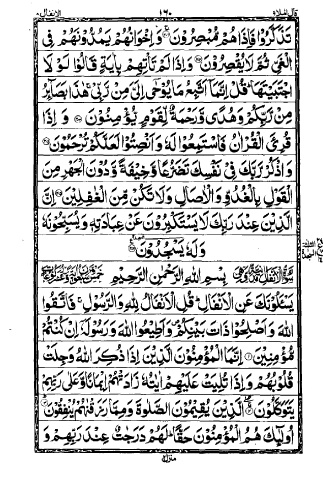 قال الملا ٩ ١٦٠ الانفال ٨
تَذَكَّرُوْا فَاِذَا هُمْ مُّبْصِرُوْنَ وَاِخْوَانُهُمْ يَمُدُّوْنَهُمْ فِى
الْغَىِّ ثُمَّ لَا يُقْصِرُوْنَ وَاِذَا لَمْ تَاْتِهِمْ بِاٰيَةٍ قَالُوْا لَوْ لَا
اجْتَبَيْتَهَا قُلْ اِنَّمَاۤ اَتَّبِعُ مَا يُوْحٰۤى اِلَىَّ مِنْ رَّبِّىْ هٰذَا بَصَآئِرُ
مِنْ رَّبِّكُمْ وَهُدًى وَّرَحْمَةٌ لِّقَوْمٍ يُّؤْمِنُوْنَ وَاِذَا
قُرِئَ الْقُرْاٰنُ فَاسْتَمِعُوْا لَهٗ وَاَنْصِتُوْا لَعَلَّكُمْ تُرْحَمُوْنَ
وَاذْكُرْ رَّبَّكَ فِىْ نَفْسِكَ تَضَرُّعًا وَّخِيْفَةً وَّدُوْنَ الْجَهْرِ مِنَ
الْقَوْلِ بِالْغُدُوِّ وَالْاٰصَالِ وَلَا تَكُنْ مِّنَ الْغٰفِلِيْنَ اِنَّ
الَّذِيْنَ عِنْدَ رَبِّكَ لَا يَسْتَكْبِرُوْنَ عَنْ عِبَادَتِهٖ وَيُسَبِّحُوْنَهٗ
وَلَهٗ يَسْجُدُوْنَ
بِسْمِ اللهِ الرَّحْمٰنِ الرَّحِيْمِ
يَسْئَلُوْنَكَ عَنِ الْاَنْفَالِ قُلِ الْاَنْفَالُ لِلّٰهِ وَالرَّسُوْلِ فَاتَّقُوا
اللهَ وَاَصْلِحُوْا ذَاتَ بَيْنِكُمْ وَاَطِيْعُوا اللهَ وَرَسُوْلَهٗۤ اِنْ كُنْتُمْ
مُّؤْمِنِيْنَ اِنَّمَا الْمُؤْمِنُوْنَ الَّذِيْنَ اِذَا ذُكِرَ اللهُ وَجِلَتْ
قُلُوْبُهُمْ وَاِذَا تُلِيَتْ عَلَيْهِمْ اٰيٰتُهٗ زَادَتْهُمْ اِيْمَانًا وَّعَلٰى رَبِّهِمْ
يَتَوَكَّلُوْنَ الَّذِيْنَ يُقِيْمُوْنَ الصَّلٰوةَ وَمِمَّا رَزَقْنٰهُمْ يُنْفِقُوْنَ
اُولٰٓئِكَ هُمُ الْمُؤْمِنُوْنَ حَقًّا لَهُمْ دَرَجٰتٌ عِنْدَ رَبِّهِمْ وَ